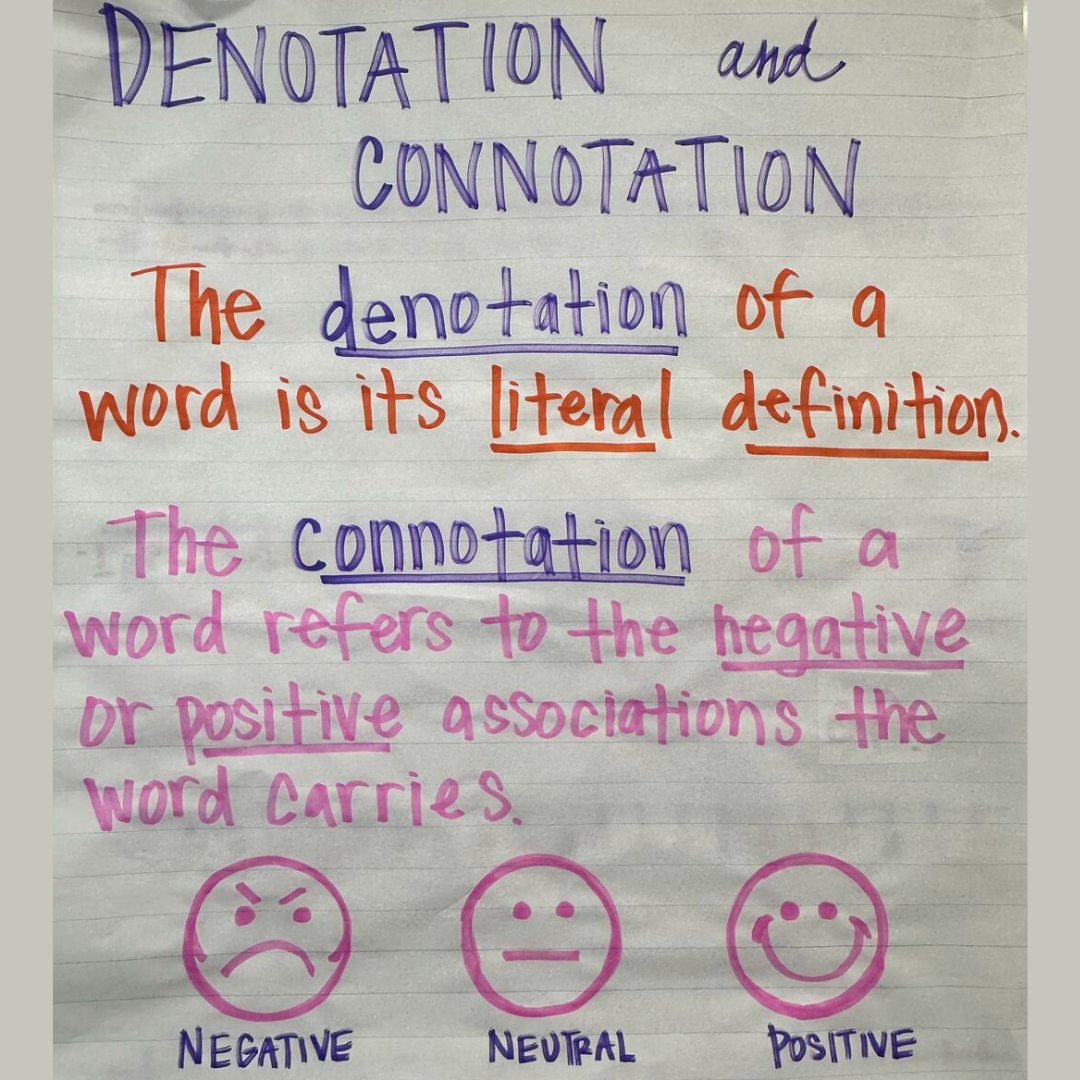 DENOTATION and
CONNOTATION
The denotation of a
word is its literal definition.
The connotation of a
word refers to the negative
or positive associations the
word carries.
NEGATIVE NEUTRAL POSITIVE